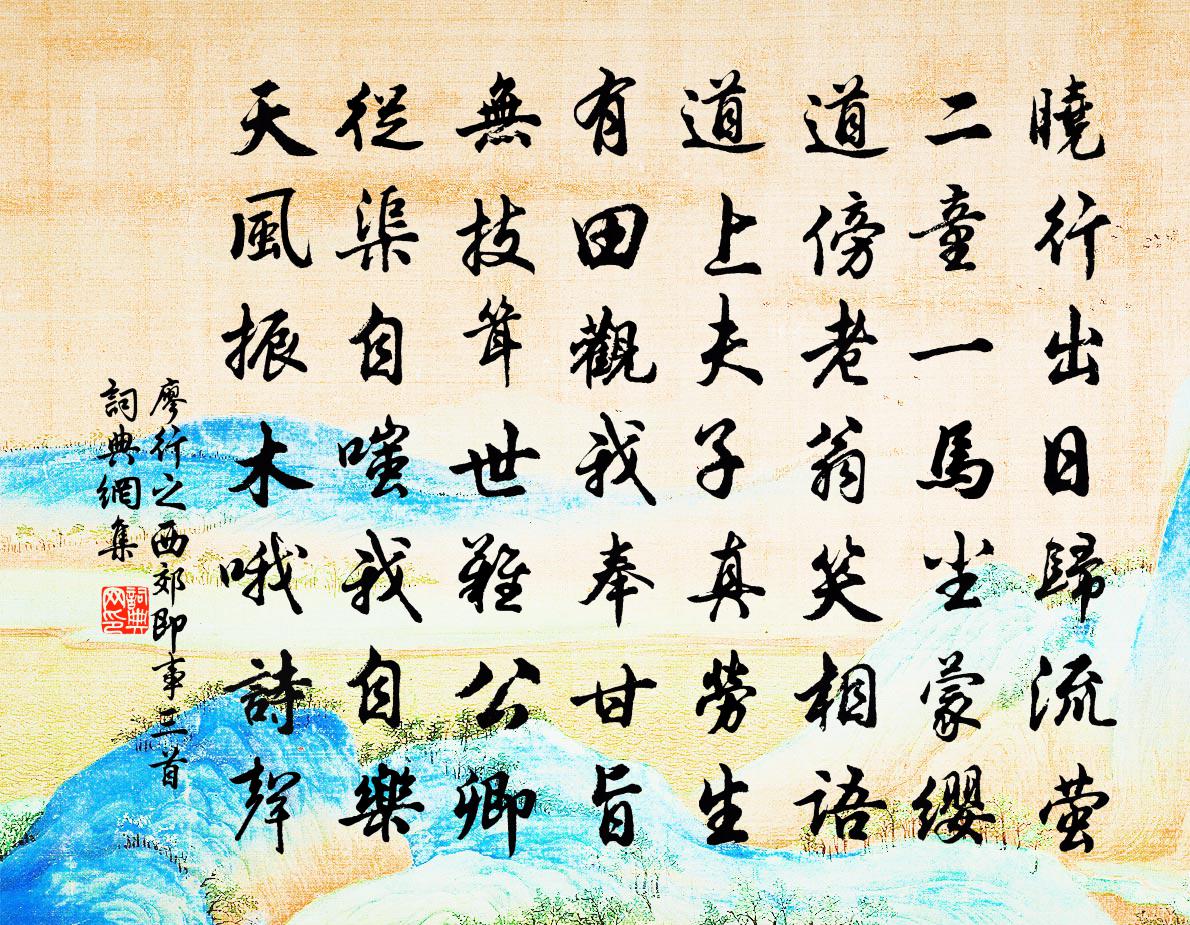 曉行出日歸流螢
二童一馬尘蒙纓
道傍老翁笑相語
道上夫子真勞生
有田觀我奉甘旨
無技聳世難公卿
從渠自嗤我自樂
天風振木哦詩聲
廖行之西郊即事二首
詞典網集
詞典网印